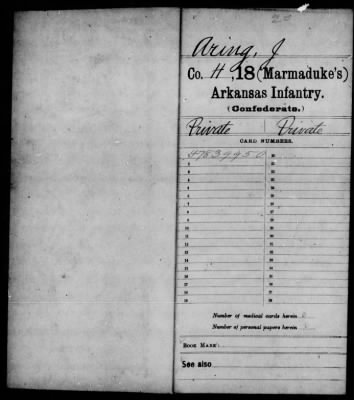 Aring, J
Co. H, 18 (Marmaduke's)
Arkansas Infantry.
(Confederate.)
Private Private
CARD NUMBERS.
1 47839950 20
2 21
3 22
4 23
5 24
6 25
7 26
8 27
9 28
10 29
11 30
12 31
13 32
14 33
15 34
16 35
17 36
18 37
19 38
Number of medical cards herein 0
Number of personal papers herein 0
BOOK MARK:
See also